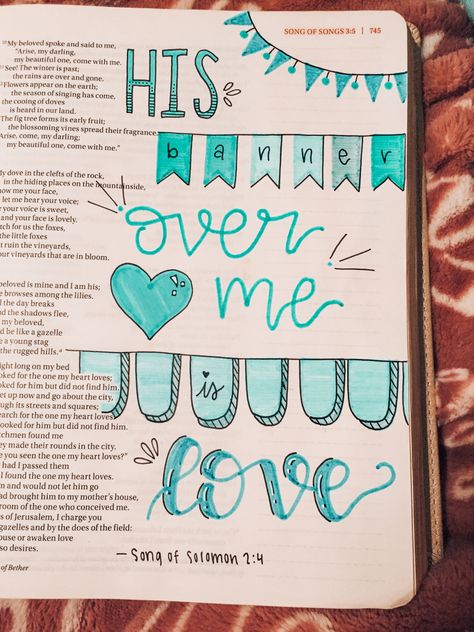 SONG OF SONGS 3:5 | 745
10 My beloved spoke and said to me,
"Arise, my darling,
my beautiful one, come with me.
11 See! The winter is past;
the rains are over and gone.
12 Flowers appear on the earth;
the season of singing has come,
the cooing of doves
is heard in our land.
The fig tree forms its early fruit;
the blossoming vines spread their fragrance.
Arise, come, my darling;
my beautiful one, come with me."
My dove in the clefts of the rock,
in the hiding places on the mountainside,
show me your face,
let me hear your voice;
your voice is sweet,
and your face is lovely.
Catch for us the foxes,
the little foxes
that ruin the vineyards,
our vineyards that are in bloom.
beloved is mine and I am his;
he browses among the lilies.
the day breaks
and the shadows flee,
my beloved,
and be like a gazelle
a young stag
the rugged hills.
night long on my bed
looked for the one my heart loves;
looked for him but did not find him.
get up now and go about the city,
through its streets and squares;
search for the one my heart loves.
looked for him but did not find him.
watchmen found me
they made their rounds in the city.
you seen the one my heart loves?"
had I passed them
I found the one my heart loves.
him and would not let him go
had brought him to my mother's house,
room of the one who conceived me.
of Jerusalem, I charge you
gazelles and by the does of the field:
arouse or awaken love
so desires.
of Bether
HIS
banner
over
me
is
love
— Song of Solomon 2:4